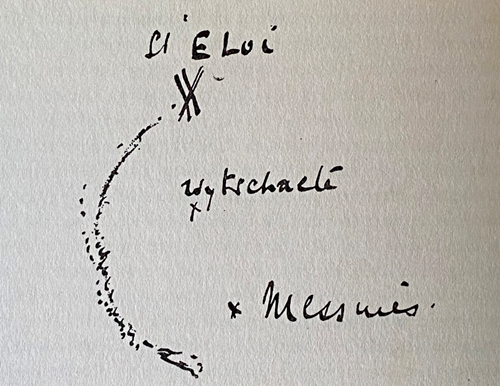 St ELoi
Wytschaete
Messines.